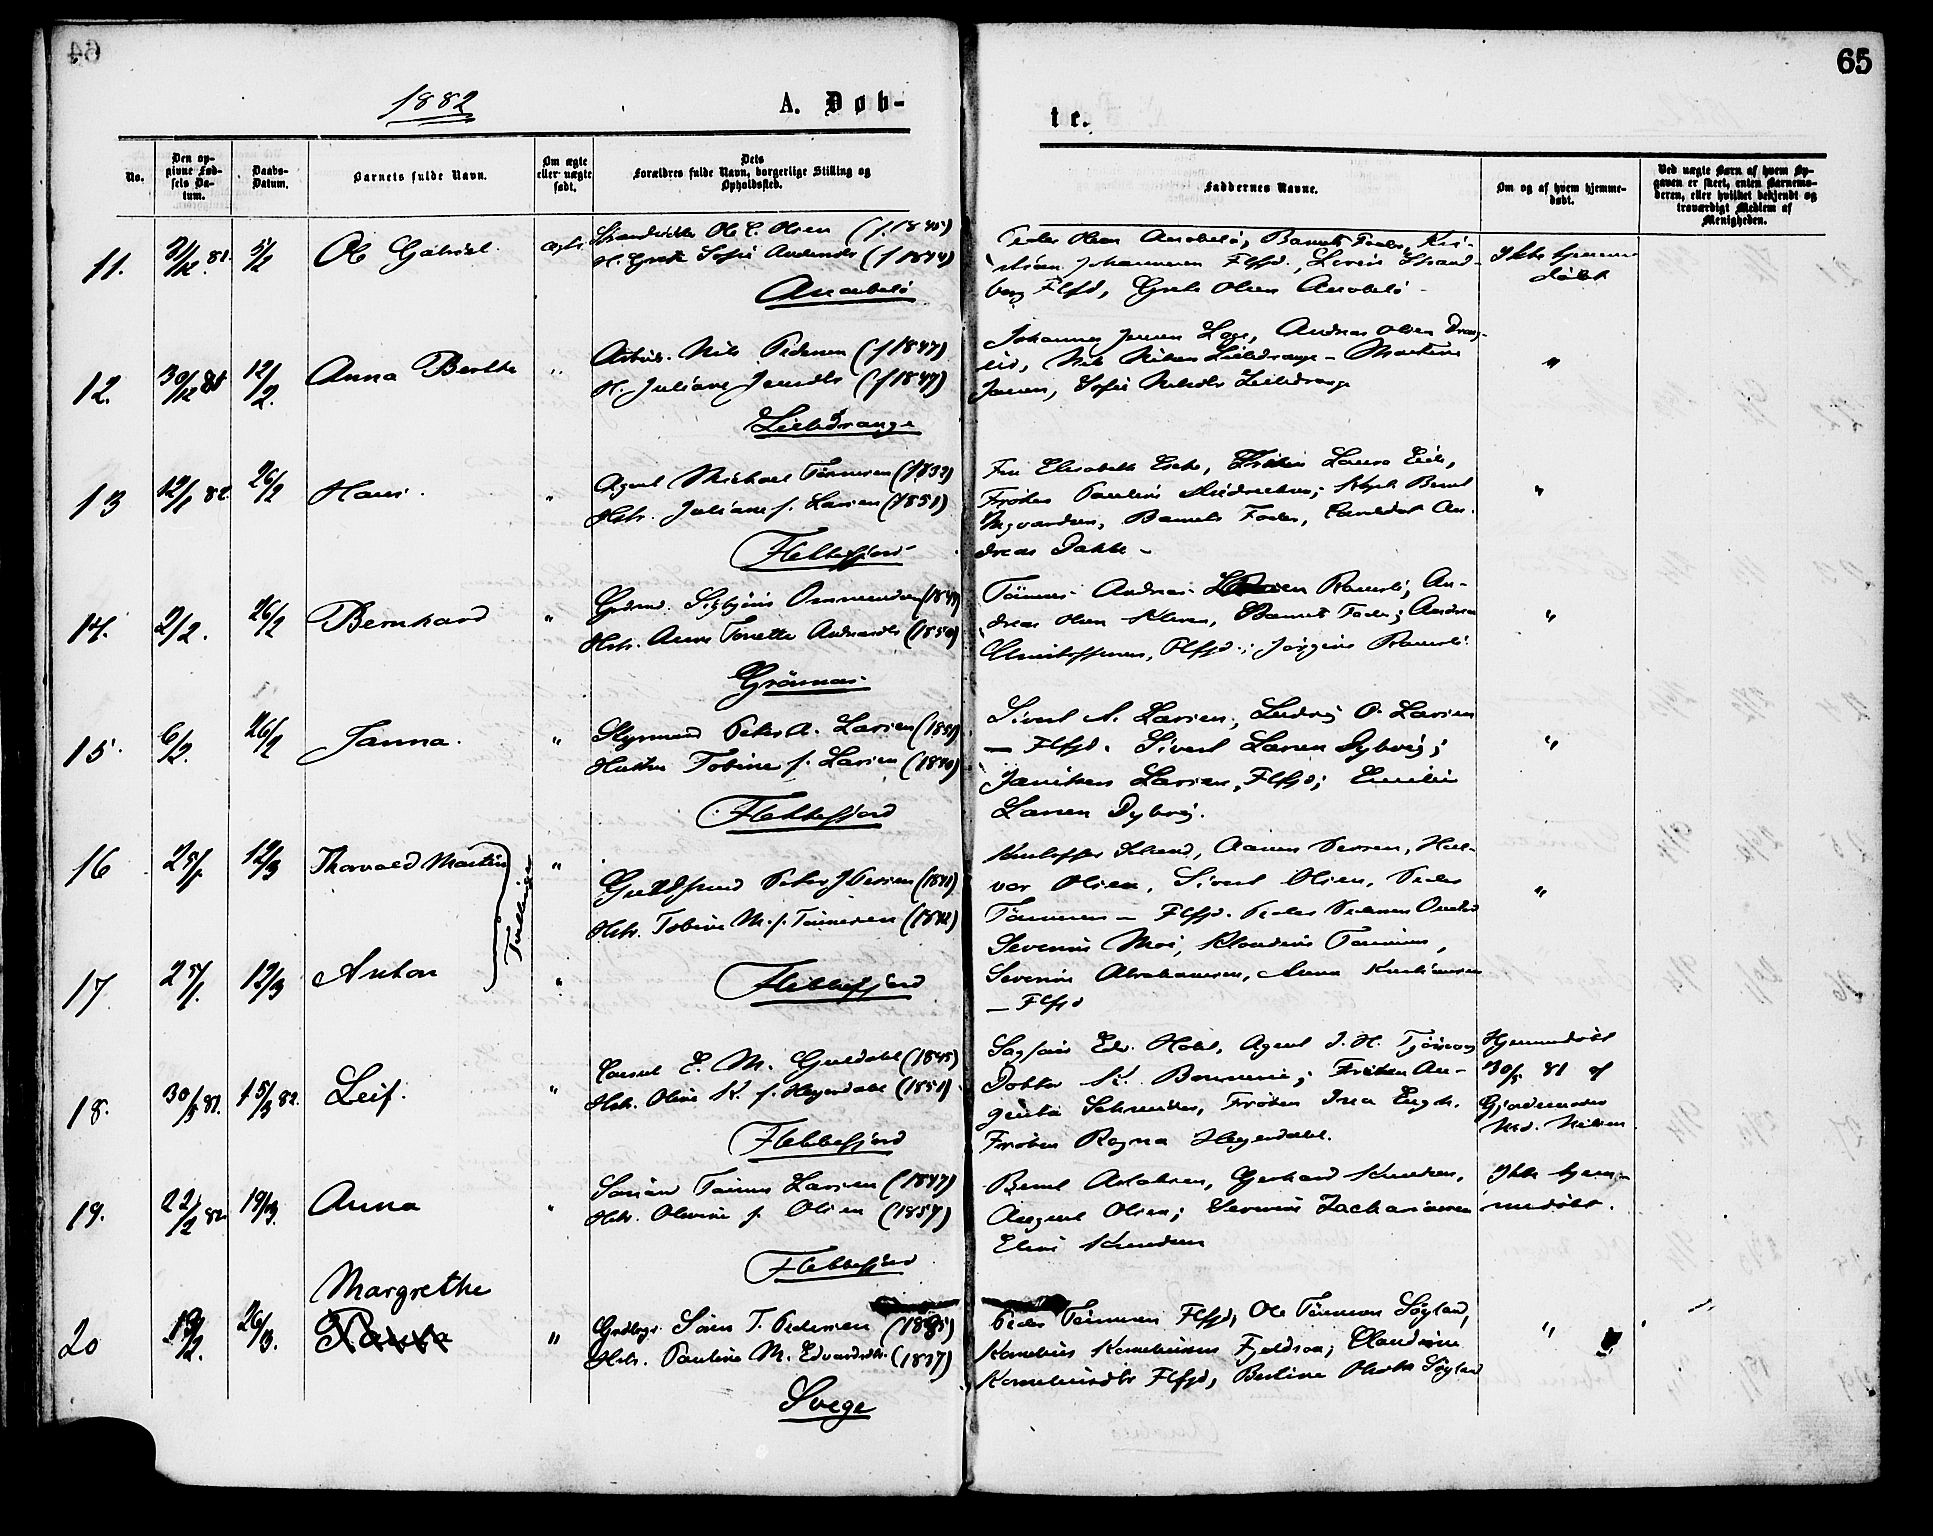 64
65
1882
A. Døb-
te.
No.
Den op-
givne Fød-
sels Da-
tum.
Daabs-
Datum.
Barnets fulde Navn.
Om ægte
eller uægte
født.
Dets
Forældres fulde Navn, borgerlige Stilling og
Opholdssted.
Faddernes Navne.
Om og af hvem hjemme-
døbt.
Ved uægte Barn af hvem Op-
gaven er skeet, enten Barnemo-
deren, eller hvilket bekjendt og
troværdigt Medlem af
Menigheden.
11. 31/12 81. 5/2 Ole Gabriel ægte
Ole C. Olsen (f. 1845)
H. Grete Sofie (f 1844)
Anabelø
Peder Olsen Anabelø, Barnets Fader, Kri-
stian Johannesen Flfjd., Strand-
berg Flfjd, Grete Olsen Anabelø
Ikke hjemme-
døbt
12. 30/12 81 12/2. Anna Berthe "
Arbeider. Nils Pedersen (f 1847)
H. Juliane Jensdtr (f 1847)
Lilledrange
Johannes Jensen Loge, Andreas Olsen Drang-
eid, Nils Nilsen Lilledrange - Martine
Jensen, Sofie Nilsdtr Lilledrange
"
13 12/1 82 26/2 Hans. "
Agent Michael Tönnesen (1832)
Hstr. Juliane f. Larsen (1851)
Flekkefjord
Fru Elisabeth Laura Eide,
Frøken Pauline Kapt. Bernt
Ingvardsen, Barnets Fader, Candidat An-
dreas Dakke -
"
14. 2/2. 26/2 Bernhard "
Grdmd. Sigbjörn Ommundsen (1844)
Hstr. Anne Tonette Andreasdtr (1850)
Grönnes
Tönnes Andreas Ramsli; An-
dreas Olsen Kleven, Barnets Fader; Andreas
Christoffersen, Flfjd.; Jörgine Ramsli
"
15. 6/2. 26/2 Janna. "
Styrmand Peter A. Larsen (1851)
Hustru Tobine f. Larsen (1850)
Flekkefjord
Sivert A. Larsen, Ludvig O. Larsen
- Flfjd. Sivert Larsen Dybvig;
Janiken Larsen, Flfjd; Emilie
Larsen Dybvig.
"
16 25/1 12/3 Thorvald Martin "
Tvillinger
Peter J Iversen (1841)
Hstr. Tobine M. f. Tönnesen (1842)
Flekkefjord
Aanen Iversen, Hal-
vor Olsen, Sivert Olsen, Peder
Tönnesen - Flfjd. Peder Pedersen
"
17. 25/1. 12/3 Anton "
Severine Moi, Klaudine Tönnesen,
Severine Abrahamsen, Anna Kristiansen
- Flfjd
18. 30/5 81. 15/3 82. Leif. "
Consul E. M. Guldahl (1845)
Hstr. Olivia K. f. Heyerdahl (1851)
Flekkefjord
Sagfører Edv. Holst, Agent J. H. Tjörsvaag
Doktor K. Bonnevie; Frøken Au-
gusta Schneider, Frøken Ina Engh.
Frøken Ragna Heyerdahl.
Hjemmedøbt
30/5 81 af
Gjordemoder
Nilsen
19. 22/2 82 19/3. Anna "
Tönnes Larsen (1847)
Hstr. Olivine f. Olsen (1857)
Flekkefjord
Bernt Adolfsen, Gerhard Knudsen,
August Olsen; Severine Zachariassen
Elise Knudsen
Ikke hjem-
medøbt.
20 19/2. 26/3. Margrethe
"
Grdbrgr. Sören T. Pedersen (1835)
Hstr. Pauline M. Edvardsdtr. (1837)
Svege
Peder Tönnesen Flfjd, Ole Tönnesen Søyland,
Kornelius Korneliussen Fjeldsaa; Claudine
Korneliusdtr Flfjd, Berline Olsdtr Søyland
"